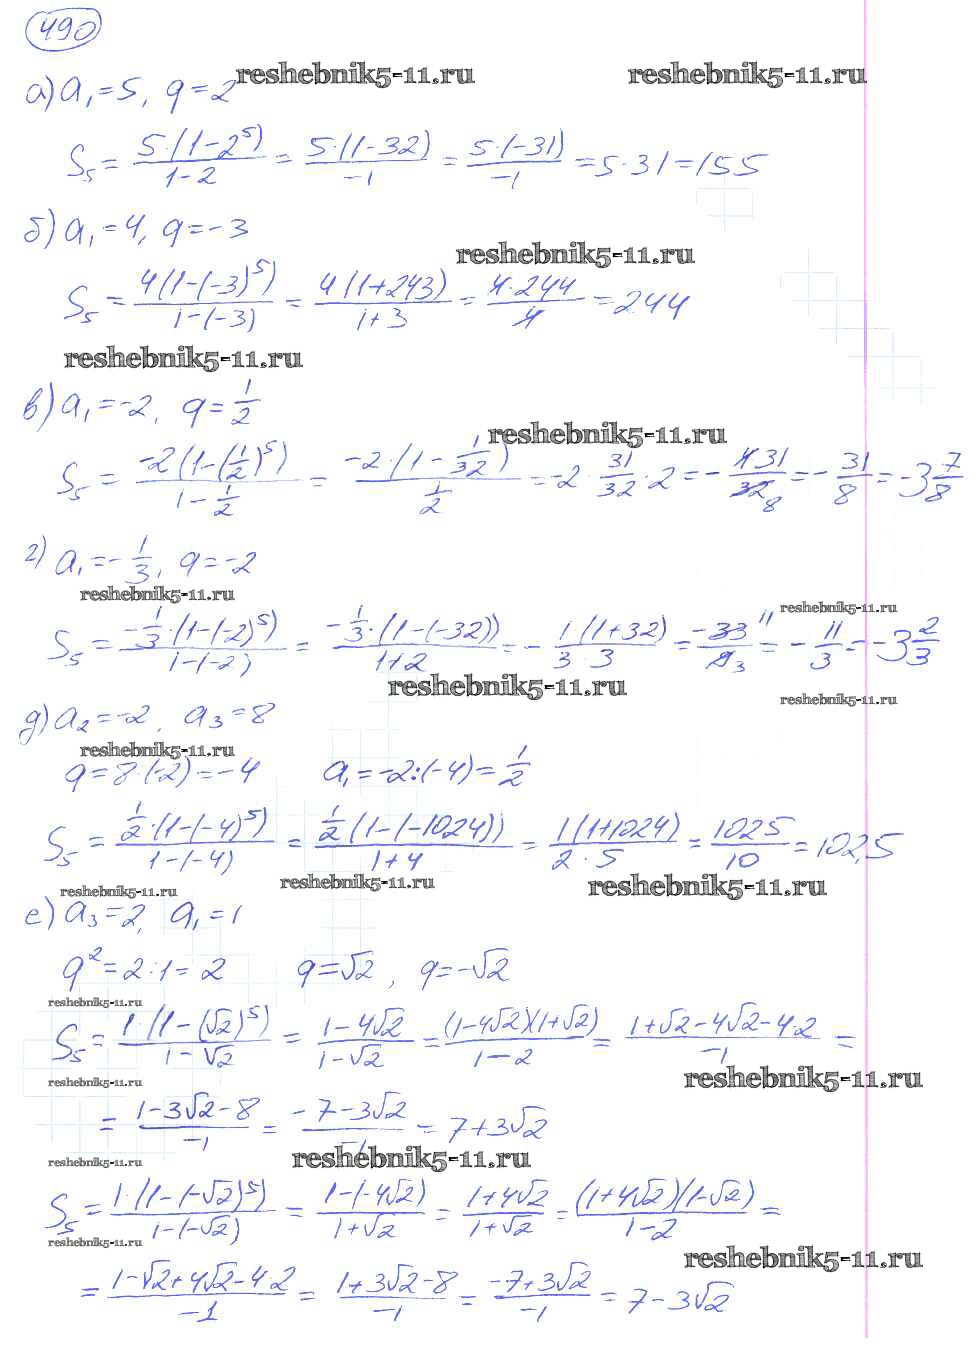 490
reshebnik5-11.ru reshebnik5-11.ru
а) a₁ = 5, q = 2
S₅ = 5·(1-2⁵)/(1-2) = 5·(1-32)/-1 = 5·(-31)/-1 = 5·31 = 155
б) a₁ = 4, q = -3
reshebnik5-11.ru
S₅ = 4(1-(-3)⁵)/(1-(-3)) = 4(1+243)/(1+3) = 4·244/4 = 244
reshebnik5-11.ru
в) a₁ = -2, q = 1/2
reshebnik5-11.ru
S₅ = -2(1-(1/2)⁵)/(1-1/2) = -2·(1-1/32)/(1/2) = -2·31/32·2 = -4 31/32 8 = -31/8 = -3 7/8
г) a₁ = -1/3, q = -2
reshebnik5-11.ru reshebnik5-11.ru
S₅ = -1/3·(1-(-2)⁵)/(1-(-2)) = -1/3·(1-(-32))/(1+2) = -1(1+32)/(3·3) = -33 11/9 3 = -11/3 = -3 2/3
reshebnik5-11.ru reshebnik5-11.ru
д) a₂ = -2, a₃ = 8
reshebnik5-11.ru
q = 8:(-2) = -4 a₁ = -2:(-4) = 1/2
S₅ = 1/2·(1-(-4)⁵)/(1-(-4)) = 1/2(1-(-1024))/(1+4) = 1(1+1024)/(2·5) = 1025/10 = 102,5
reshebnik5-11.ru reshebnik5-11.ru reshebnik5-11.ru
е) a₃ = 2, a₁ = 1
q² = 2:1 = 2 q = √2, q = -√2
reshebnik5-11.ru
S₅ = 1·(1-(√2)⁵)/(1-√2) = (1-4√2)/(1-√2) = (1-4√2)(1+√2)/(1-2) = (1+√2-4√2-4·2)/-1 =
reshebnik5-11.ru reshebnik5-11.ru
= (1-3√2-8)/-1 = (-7-3√2)/-1 = 7+3√2
reshebnik5-11.ru reshebnik5-11.ru
S₅ = 1·(1-(-√2)⁵)/(1-(-√2)) = (1-(-4√2))/(1+√2) = (1+4√2)/(1+√2) = (1+4√2)(1-√2)/(1-2) =
reshebnik5-11.ru reshebnik5-11.ru
= (1-√2+4√2-4·2)/-1 = (1+3√2-8)/-1 = (-7+3√2)/-1 = 7-3√2